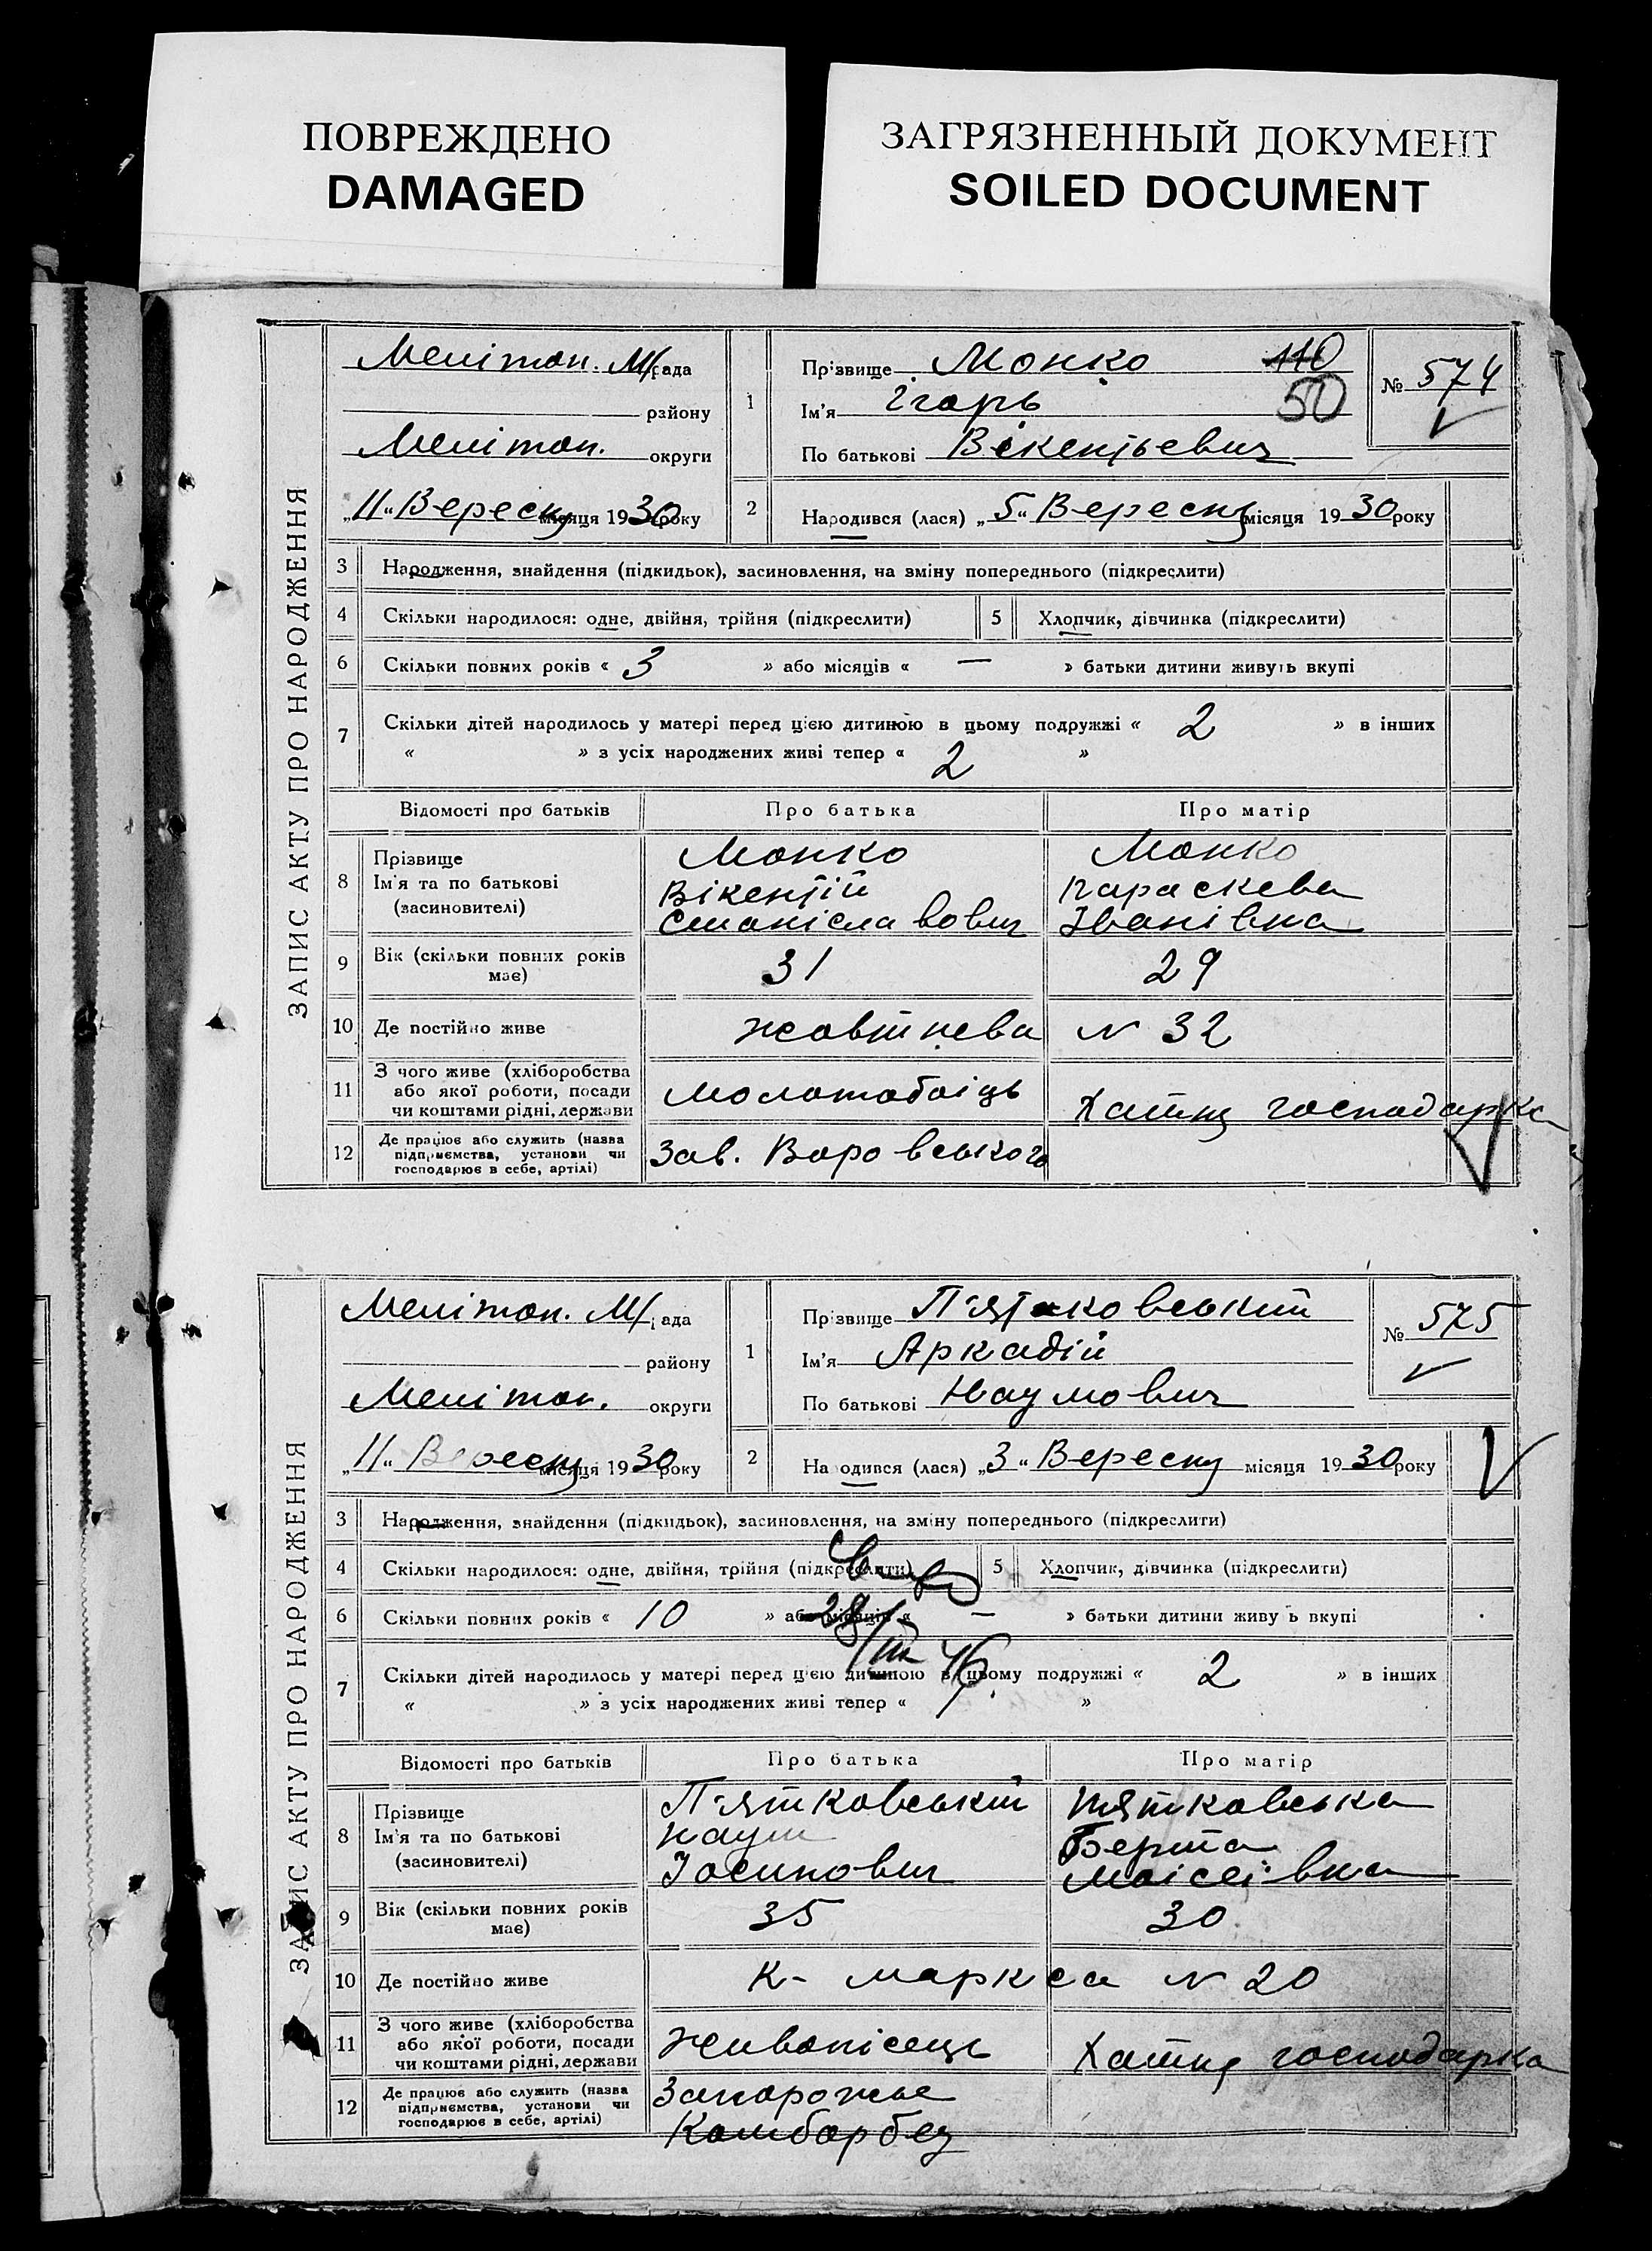 ПОВРЕЖДЕНО
DAMAGED
ЗАГРЯЗНЕННЫЙ ДОКУМЕНТ
SOILED DOCUMENT
ЗАПИС АКТУ ПРО НАРОДЖЕННЯ
Мелітоп. М/рада
району
Мелітоп. округи
„11“ Вересня місяця 1930 року
1
Прізвище Монко 110
Ім'я Ігорь 50
По батькові Вікентьевич
№ 574
2
Народився (лася) „5“ Вересня місяця 1930 року
3 Народження, знайдення (підкидьок), засиновлення, на зміну попереднього (підкреслити)
4 Скільки народилося: одне, двійня, трійня (підкреслити) 5 Хлопчик, дівчинка (підкреслити)
6 Скільки повних років « 3 » або місяців « — » батьки дитини живуть вкупі
7 Скільки дітей народилось у матері перед цією дитиною в цьому подружжі « 2 » в інших
« » з усіх народжених живі тепер « 2 »
Відомості про батьків Про батька Про матір
8 Прізвище
Ім'я та по батькові
(засиновителі)
Монко
Вікентій
Станіславович
Монко
Параскева
Іванівна
9 Вік (скільки повних років має) 31 29
10 Де постійно живе Жовтнева N 32
11 З чого живе (хліборобства
або якої роботи, посади
чи коштами рідні, держави
Молотобоіць Хатня господарка
12 Де працює або служить (назва
підприємства, установи чи
господарює в себе, артілі)
Зав. Воровського
ЗАПИС АКТУ ПРО НАРОДЖЕННЯ
Мелітоп. М/рада
району
Мелітоп. округи
„11“ Вересня місяця 1930 року
1
Прізвище П'ятковський
Ім'я Аркадій
По батькові Наумович
№ 575
2
Народився (лася) „3“ Вересня місяця 1930 року
3 Народження, знайдення (підкидьок), засиновлення, на зміну попереднього (підкреслити)
4 Скільки народилося: одне, двійня, трійня (підкреслити) 5 Хлопчик, дівчинка (підкреслити)
6 Скільки повних років « 10 » або місяців « — » батьки дитини живуть вкупі
28/III 46
7 Скільки дітей народилось у матері перед цією дитиною в цьому подружжі « 2 » в інших
« » з усіх народжених живі тепер « »
Відомості про батьків Про батька Про матір
8 Прізвище
Ім'я та по батькові
(засиновителі)
П'ятковський
Наум
Іосипович
Пятковська
Берта
Моісеівна
9 Вік (скільки повних років має) 35 30
10 Де постійно живе К- Маркса N 20
11 З чого живе (хліборобства
або якої роботи, посади
чи коштами рідні, держави
Живопісець Хатня господарка
12 Де працює або служить (назва
підприємства, установи чи
господарює в себе, артілі)
Запорожье